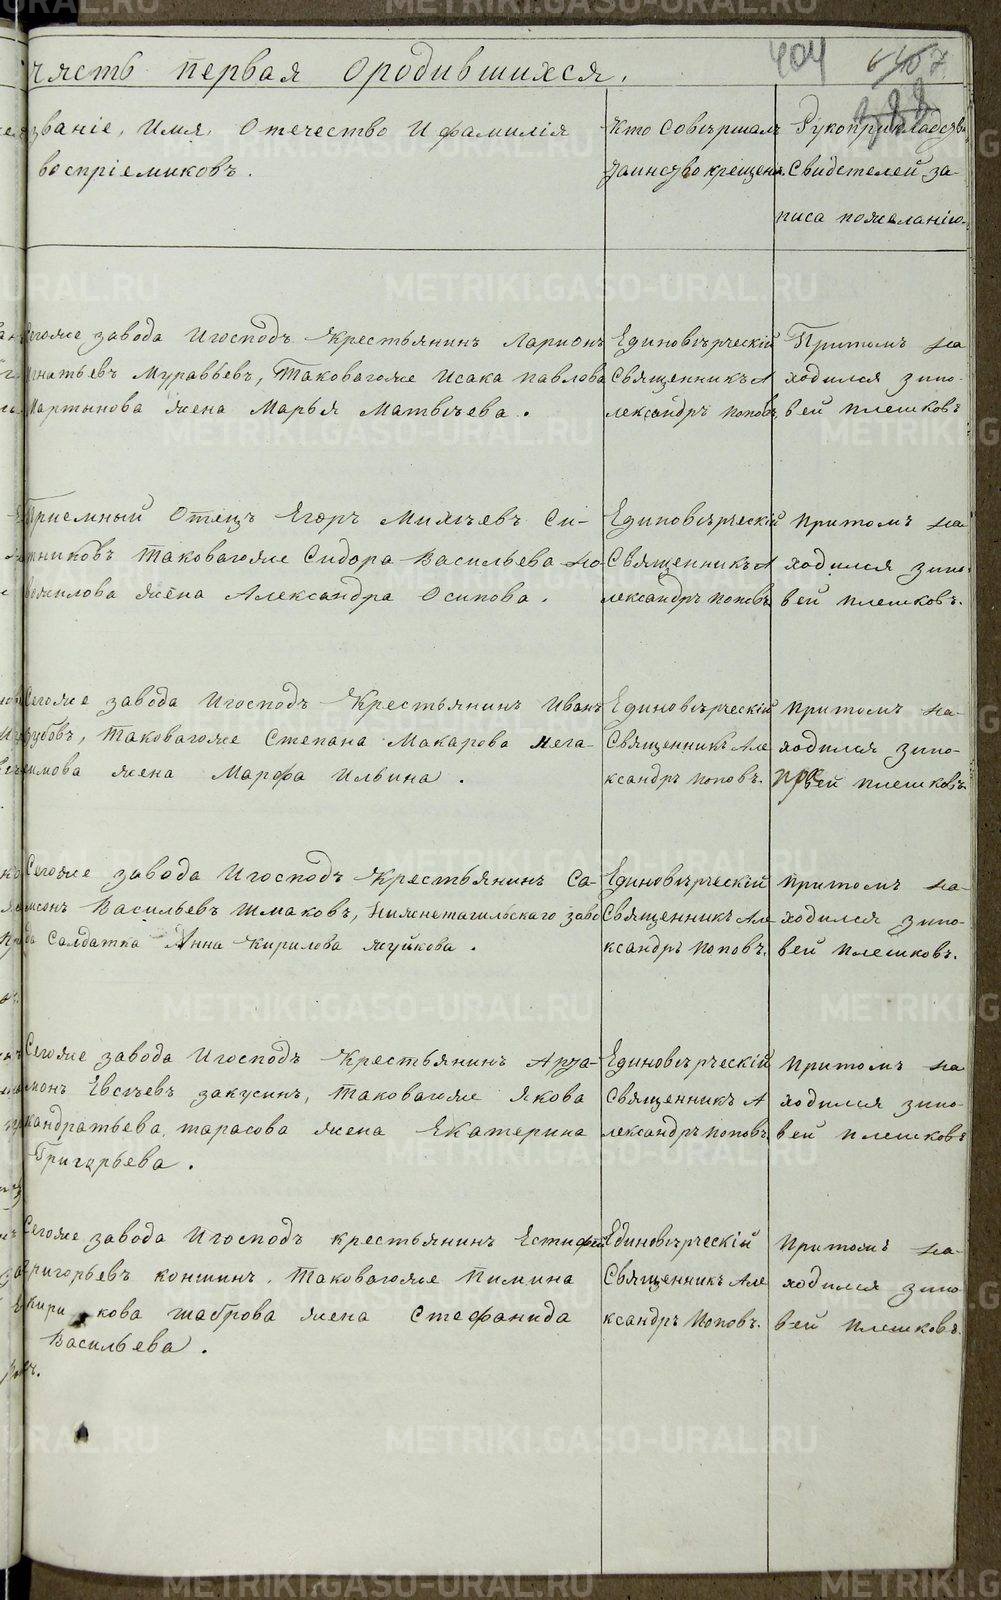 часть первая о родившихся.
404
званіе, Имя, Отечество И фамилія
воспріемиковъ.
Кто Совершалъ
таинство крещенія
Рукоприкладство
Свидетелей за-
писа пожеланію.
Сегоже завода Игосподъ Крестьянинъ Ларионъ
Игнатьевъ Муравьевъ, Таковагоже Исака павлова
Мартынова жена Марья Матвѣева.
Единовѣрческій
Священникъ А
лександръ поповъ
Притомъ на
ходился зино-
вей плешковъ
Приемный Отецъ Егоръ Михѣевъ Си-
тниковъ таковагоже Сидора Васильева Но-
вожилова жена Александра Осипова.
Единовѣрческій
Священникъ А
лександръ поповъ
притомъ на
ходился зино
вей плешковъ.
Сегоже завода Игосподъ Крестьянинъ Иванъ
Зубовъ, таковагоже Степана Макарова Нега-
симова жена Марфа Ильина.
Единовѣрческій
Священникъ Але
ксандръ поповъ.
притомъ на-
ходился зино-
вей плешковъ
Сегоже завода Игосподъ Крестьянинъ Са-
мсонъ Васильевъ Шмаковъ, Нижнетагильскаго заво
да Салдатка Анна Кирилова жуйкова.
Единовѣрческій
Священникъ Але
ксандръ поповъ.
притомъ на-
ходился зино-
вей плешковъ.
Сегоже завода Игосподъ Крестьянинъ Арта-
монъ Евсѣевъ закусинъ, таковагоже Якова
кандратьева тарасова жена Екатерина
Григорьева.
Единовѣрческій
Священникъ А
лександръ поповъ
притомъ на
ходился зино-
вей плешковъ
Сегоже завода Игосподъ крестьянинъ Естифей
Григорьевъ коншинъ. таковагоже Пимина
кова шаброва жена Стефанида
Васильева.
Единовѣрческій
Священникъ Але
ксандръ Поповъ.
притомъ на-
ходился зино
вей плешковъ.
METRIKI.GASO-URAL.RU